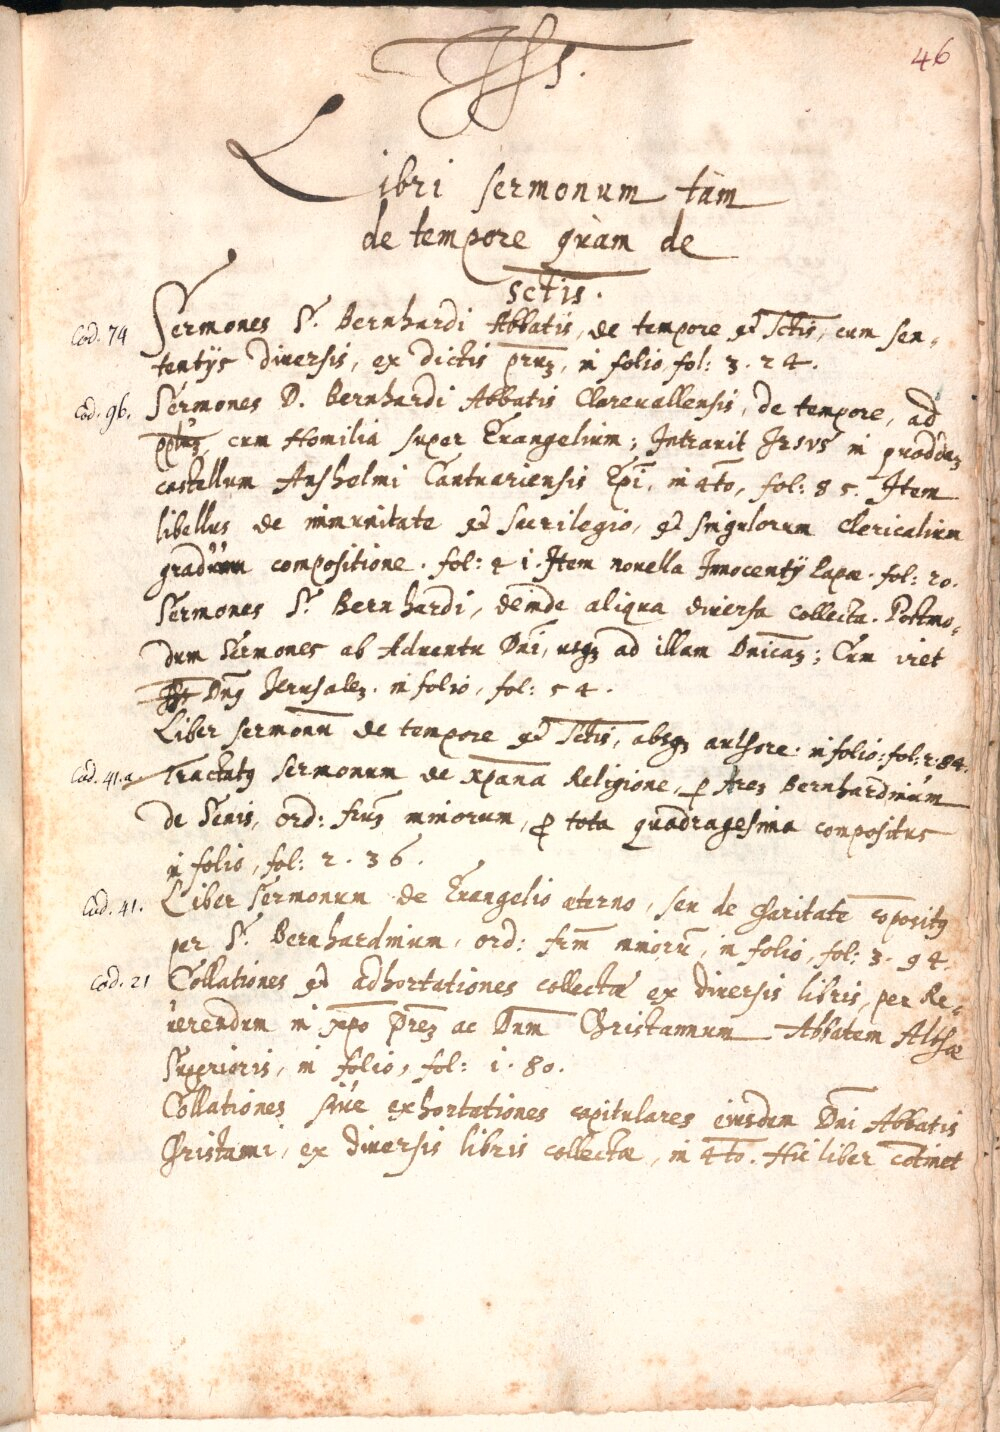 46
Jhs.
Libri sermonum tàm
de tempore quàm de
sctis.
Cod. 74 Sermones S. Bernhardi Abbatis, de tempore et sctis, cum sen-
tentijs diuersis, ex dictis in folio, fol: 324.
Cod. 96. Sermones D. Bernhardi Abbatis Clareuallensis, de tempore, ad
cum Homilia super Euangelium; Intrauit Jesus in quoddã
castellum Anshelmi Cantuariensis Epi, in 4to, fol: 85. Item
libellus de immunitate et sacrilegio, et singulorum clericalium
graduum compositione. fol: 41. Item nouella Innocentij Papæ. fol: 20.
Sermones S. Bernhardi, deinde aliqua diuersa collecta. Postmo-
dum sermones ab Aduentu Dni, usq3 ad illam Dnicã; Cum iret
Dns Jerusalẽ. in folio, fol: 54.
Liber sermonũ de tempore et sctis, absq3 authore. in folio: fol: 284.
Cod. 41.a Tractatus sermonum de xpana Religione, p frẽ Bernhardinum
de Senis, ord: minorum, p tota quadragesima compositus
in folio, fol: 236.
Cod. 41. Liber Sermonum de Euangelio æterno, seu de Charitate copositus
per S. Bernhardinum, ord: frm minorũ, in folio, fol: 394.
Cod. 21 Collationes et adhortationes collectæ ex diuersis libris, per Re-
uerendum in xpo Prẽ ac Dnm Christannum Abbatem Althæ
Superioris, in folio, fol: 180.
Collationes siue exhortationes capitulares eiusdem Dni Abbatis
Christanni, ex diuersis libris collectæ, in 4to. Hic liber cotinet